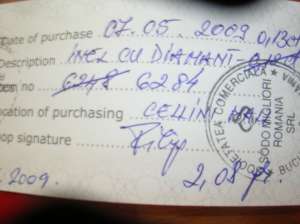 Date of purchase 07.05.2009 0,13ct
Description INEL CU DIAMANT
no 6248 6284
ocation of purchasing CELLINI
op signature
SOCIETATEA COMERCIALA
SODO MIGLIORI
ROMANIA
SRL
2009.
2,08 gr.